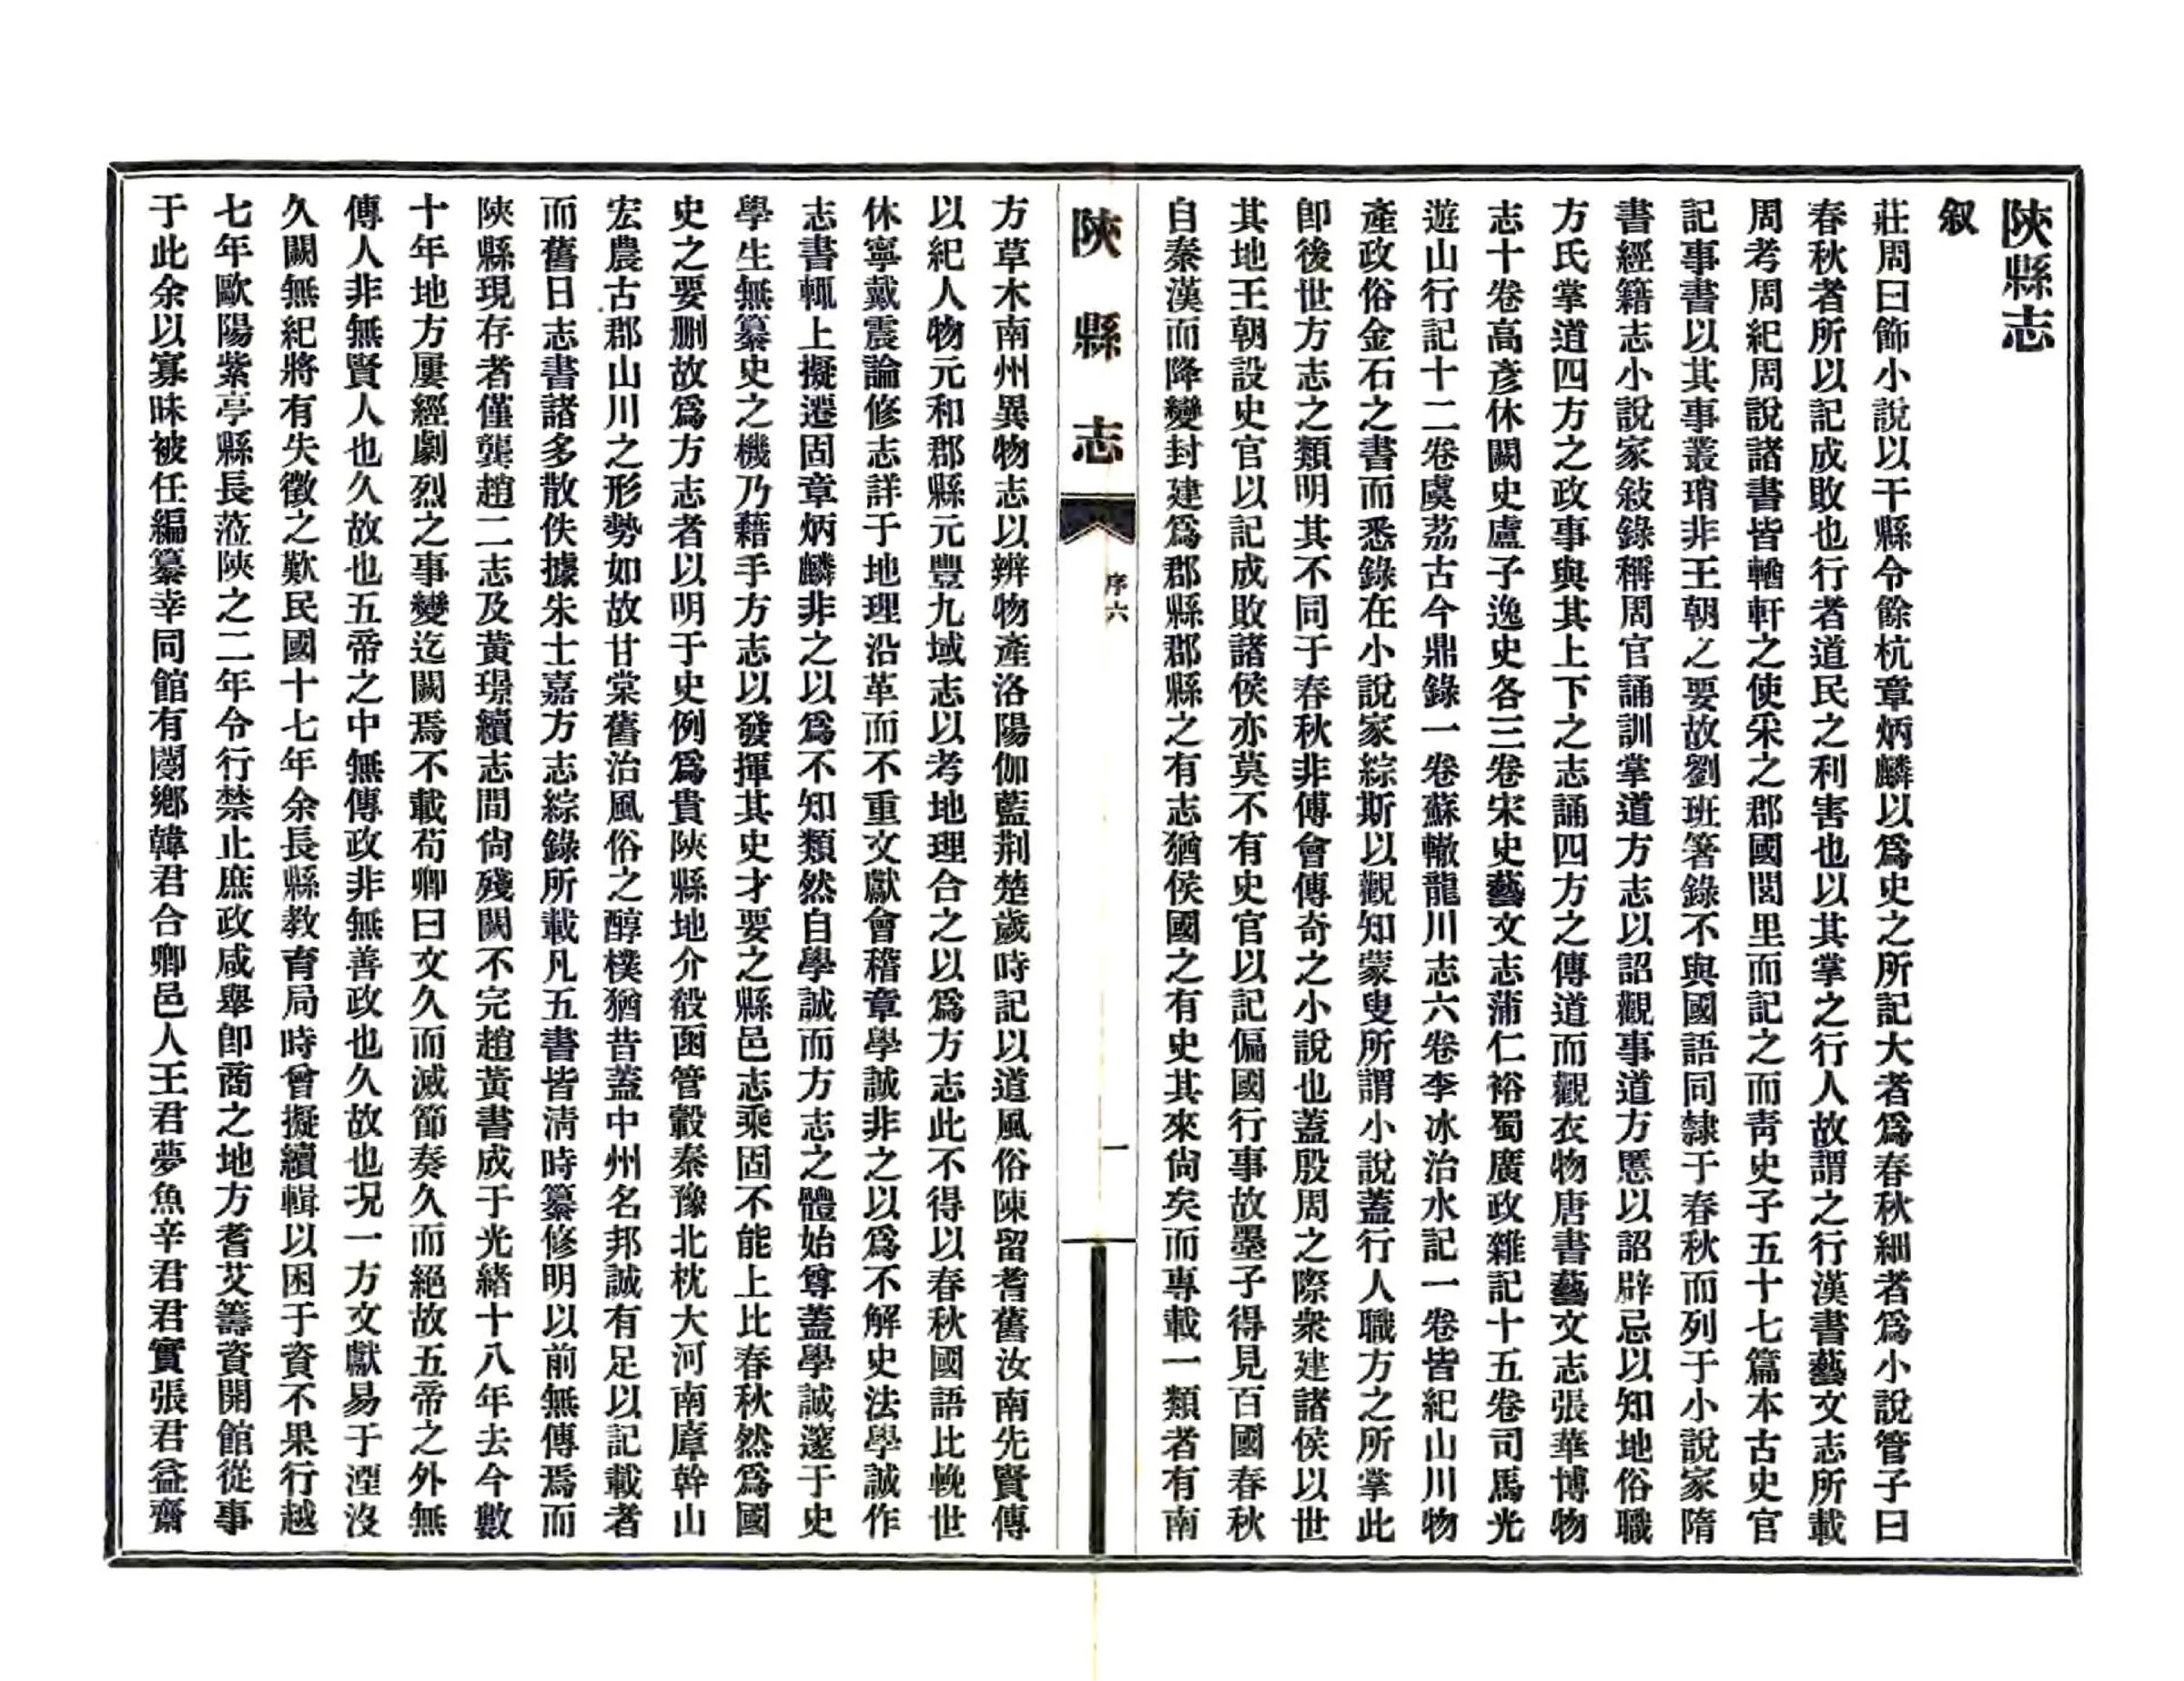 陝縣志
叙
莊周曰飾小說以干縣令餘杭章炳麟以爲史之所記大者爲春秋細者爲小說管子曰
春秋者所以記成敗也行者道民之利害也以其掌之行人故謂之行漢書藝文志所載
周考周紀周說諸書皆輶軒之使采之郡國閭里而記之而靑史子五十七篇本古史官
記事書以其事叢瑣非王朝之要故劉班箸錄不與國語同隸于春秋而列于小說家隋
書經籍志小說家敍錄稱周官誦訓掌道方志以詔觀事道方慝以詔辟忌以知地俗職
方氏掌道四方之政事與其上下之志誦四方之傳道而觀衣物唐書藝文志張華博物
志十卷高彥休闕史盧子逸史各三卷宋史藝文志蒲仁裕蜀廣政雜記十五卷司馬光
遊山行記十二卷虞荔古今鼎錄一卷蘇轍龍川志六卷李冰治水記一卷皆紀山川物
產政俗金石之書而悉錄在小說家綜斯以觀知蒙叟所謂小說蓋行人職方之所掌此
卽後世方志之類明其不同于春秋非傳會傳奇之小說也蓋殷周之際衆建諸侯以世
其地王朝設史官以記成敗諸侯亦莫不有史官以記偏國行事故墨子得見百國春秋
自秦漢而降變封建爲郡縣郡縣之有志猶侯國之有史其來尙矣而專載一類者有南
陝縣志
序六
一
方草木南州異物志以辨物產洛陽伽藍荆楚歲時記以道風俗陳留耆舊汝南先賢傳
以紀人物元和郡縣元豐九域志以考地理合之以爲方志此不得以春秋國語比輓世
休寧戴震論修志詳于地理沿革而不重文獻會稽章學誠非之以爲不解史法學誠作
志書輒上擬遷固章炳麟非之以爲不知類然自學誠而方志之體始尊蓋學誠邃于史
學生無纂史之機乃藉手方志以發揮其史才要之縣邑志乘固不能上比春秋然爲國
史之要删故爲方志者以明于史例爲貴陝縣地介殽函管轂秦豫北枕大河南廕幹山
宏農古郡山川之形勢如故甘棠舊治風俗之醇樸猶昔蓋中州名邦誠有足以記載者
而舊日志書諸多散佚據朱士嘉方志綜錄所載凡五書皆淸時纂修明以前無傳焉而
陝縣現存者僅龔趙二志及黃璟續志間尙殘闕不完趙黃書成于光緒十八年去今數
十年地方屢經劇烈之事變迄闕焉不載荀卿曰文久而滅節奏久而絕故五帝之外無
傳人非無賢人也久故也五帝之中無傳政非無善政也久故也況一方文獻易于湮沒
久闕無紀將有失徵之歎民國十七年余長縣教育局時曾擬續輯以困于資不果行越
七年歐陽紫亭縣長蒞陝之二年令行禁止庶政咸舉卽商之地方耆艾籌資開館從事
于此余以寡昧被任編纂幸同館有閿鄉韓君合卿邑人王君夢魚辛君君實張君益齋